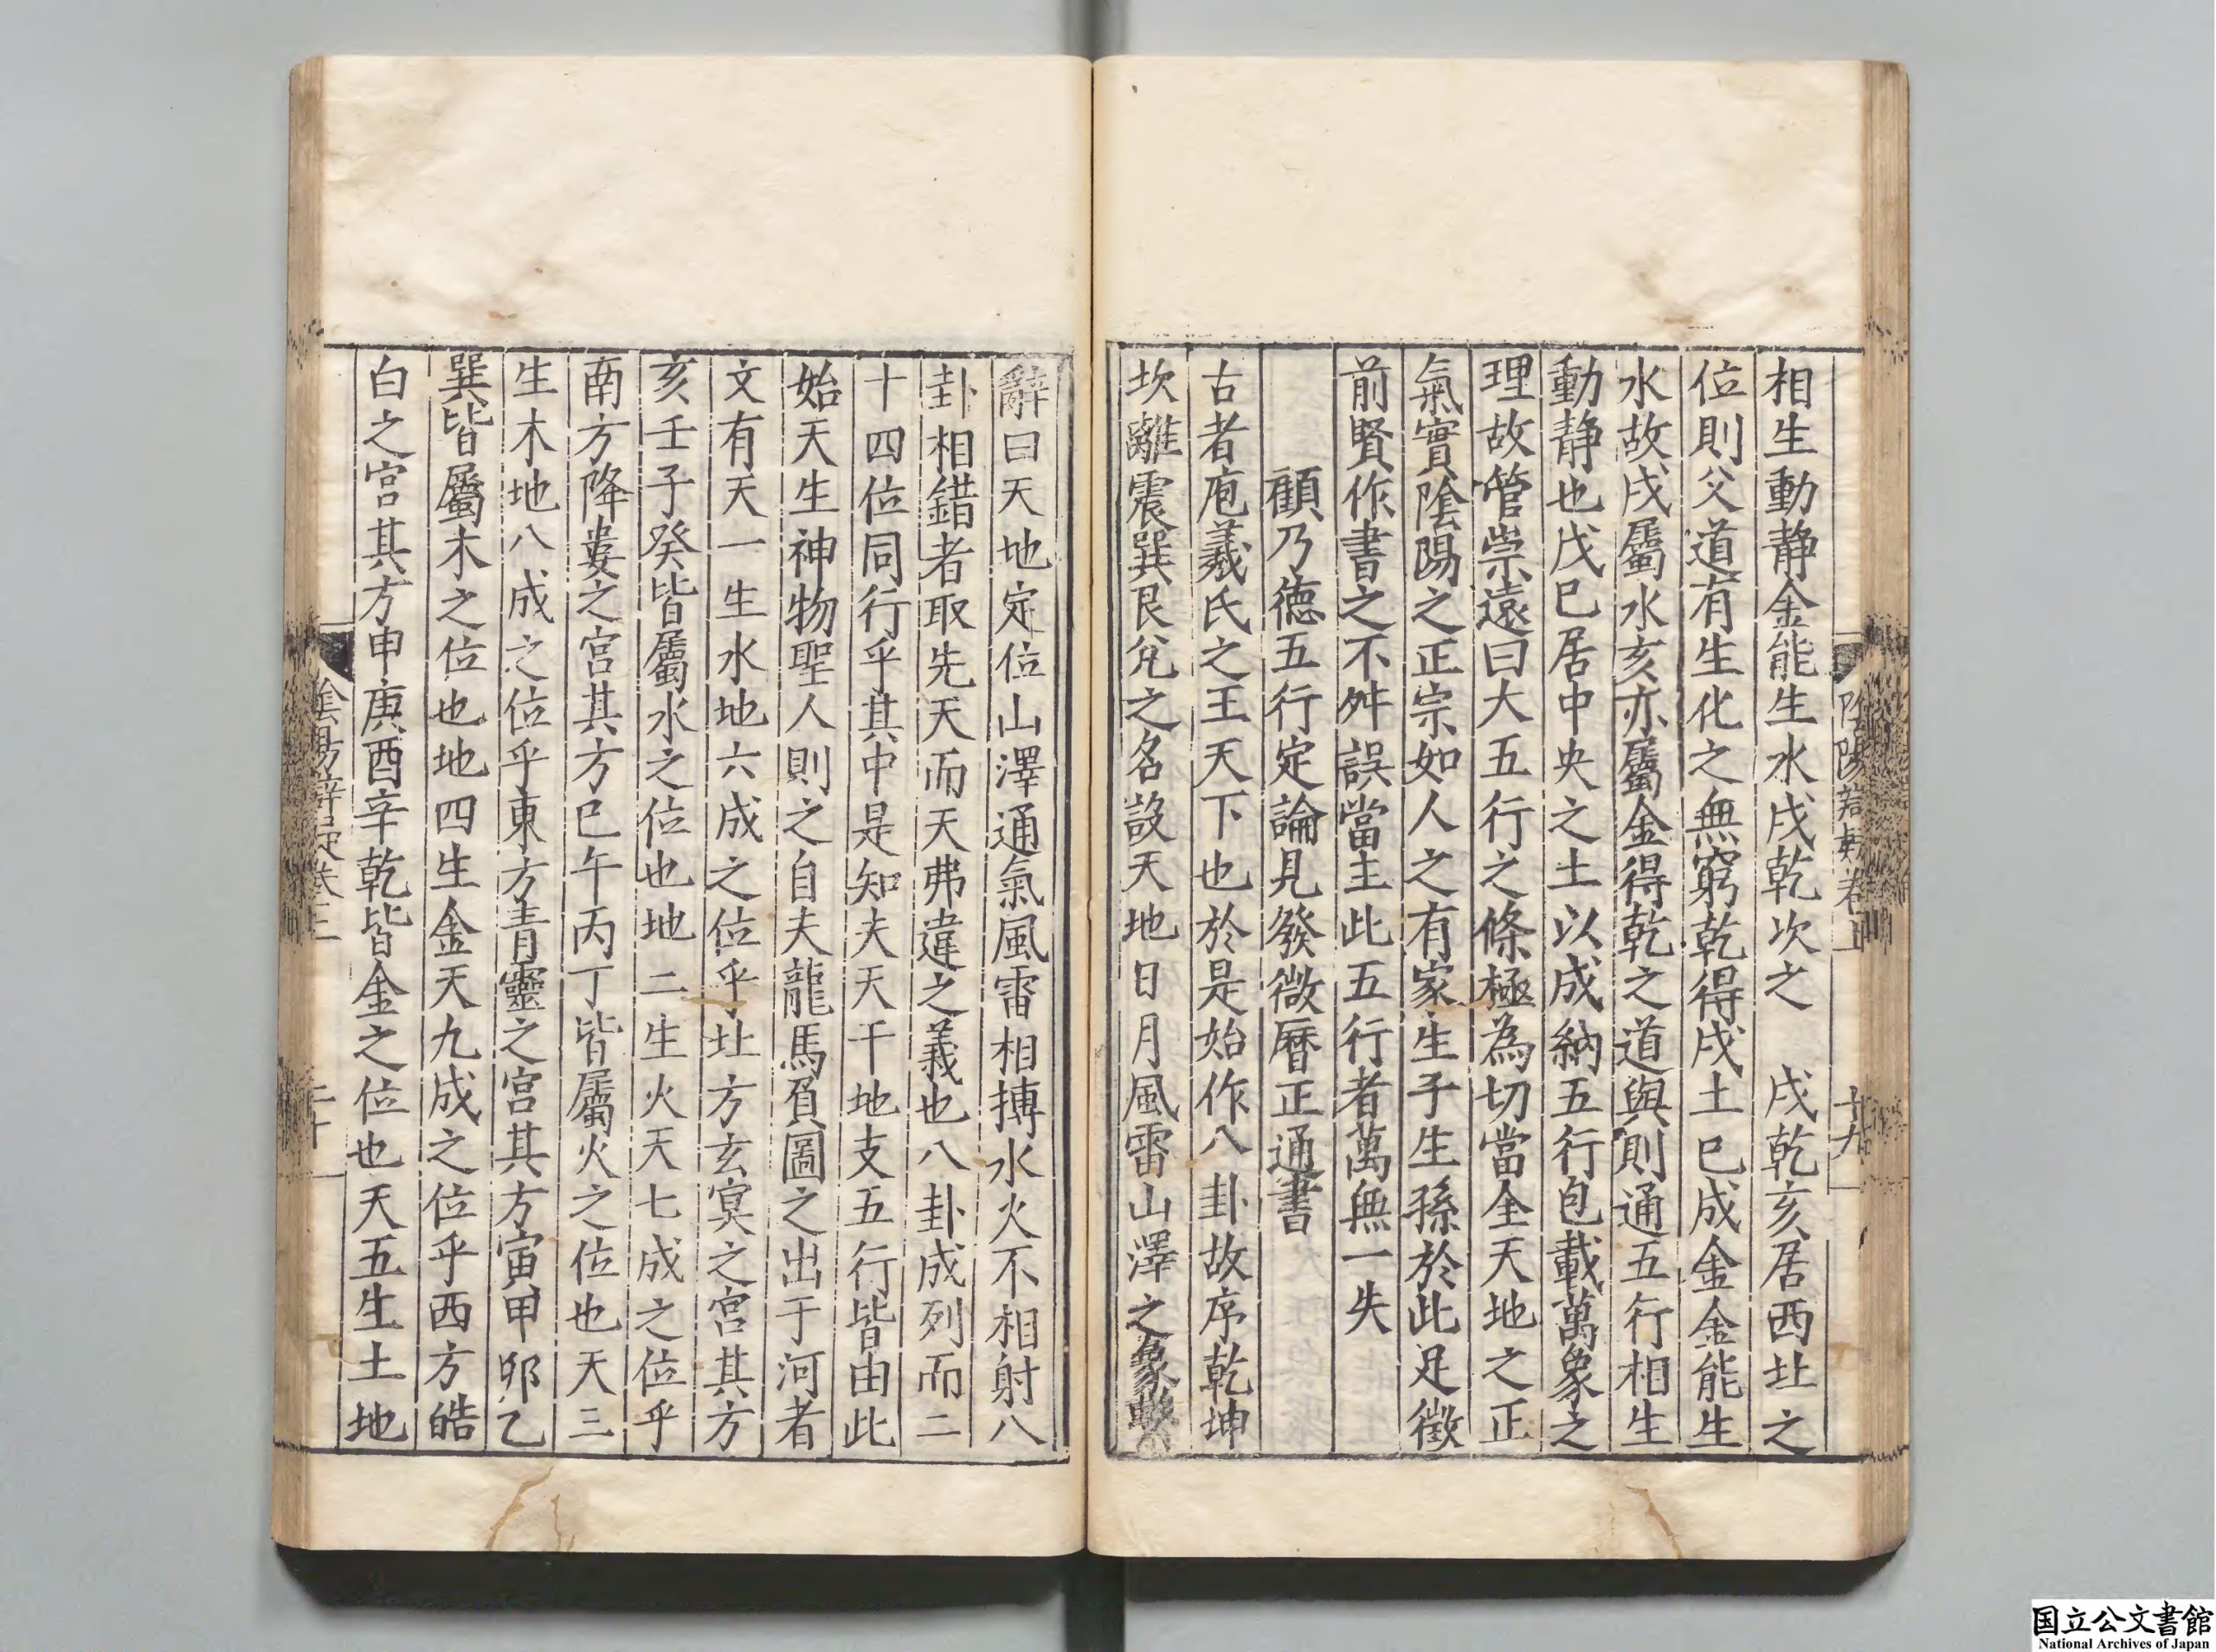 相生動静金能生水戌乾坎之　戌乾亥居西北之
位則父道有生化之無窮乾得戌土巳成金金能生
水故戌屬水亥亦屬金得乾之道與則通五行相生
動静也戊巳居中央之土以成納五行包載萬象之
理故管崇遠曰大五行之條極為切當全天地之正
氣實陰陽之正宗如人之有家生子生孫於此足徵
前賢作書之不舛誤當主此五行者萬無一失
顧乃德五行定論見發微曆正通書
古者庖羲氏之王天下也於是始作八卦故序乾坤
坎離震巽艮兌之名設天地日月風雷山澤之象繫
辭曰天地定位山澤通氣風雷相搏水火不相射八
卦相錯者取先天而天弗違之義也八卦成列而二
十四位同行乎其中是知夫天干地支五行皆由此
始天生神物聖人則之自夫龍馬負圖之出于河者
文有天一生水地六成之位乎北方玄冥之宮其方
亥壬子癸皆屬水之位也地二生火天七成之位乎
南方降婁之宮其方巳午丙丁皆屬火之位也天三
生木地八成之位乎東方青靈之宮其方寅甲卯乙
巽皆屬木之位也地四生金天九成之位乎西方皓
白之宮其方申庚酉辛乾皆金之位也天五生土地
國立公文書館
National Archives of Japan